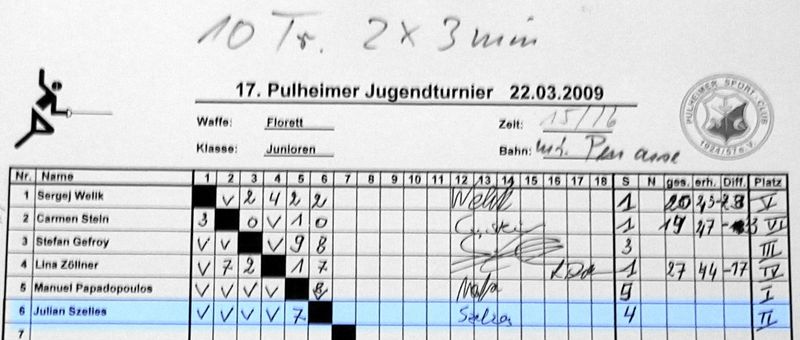 10 Tr. 2 x 3 min
17. Pulheimer Jugendturnier 22.03.2009
Waffe: Florett Zeit: 15/16
Klasse: Junioren Bahn:
PULHEIMER SPORT CLUB 1924/57 e.V.
Nr. Name 1 2 3 4 5 6 7 8 9 10 11 12 13 14 15 16 17 18 S N ges. erh. Diff. Platz
1 Sergej Welik V 2 4 2 2 1 20 V
2 Carmen Stein 3 0 V 1 0 1 19 47 VI
3 Stefan Gefroy V V V 9 8 3 III
4 Lina Zöllner V 7 2 1 7 1 27 44 -17 IV
5 Manuel Papadopoulos V V V V 8 5 I
6 Julian Szelles V V V V 7 4 II
7